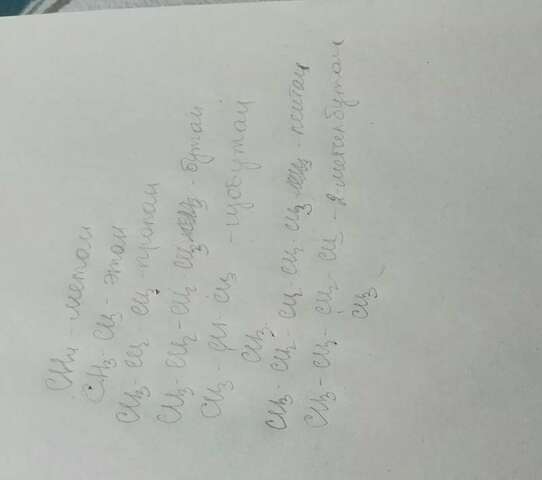 CH4 - метан
CH3 - CH3 - этан
CH3 - CH2 - CH3 - пропан
CH3 - CH2 - CH2 - CH3 - бутан
CH3 - CH - CH3 - изобутан
CH3
CH3 - CH2 - CH2 - CH2 - CH3 - пентан
CH3 - CH2 - CH - 2-метилбутан
CH3